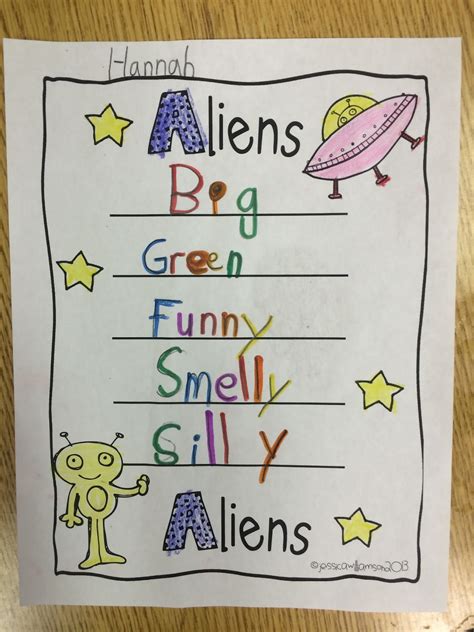 Hannah
Aliens
Big
Green
Funny
Smelly
Silly
Aliens
©jessicawilliamson2013